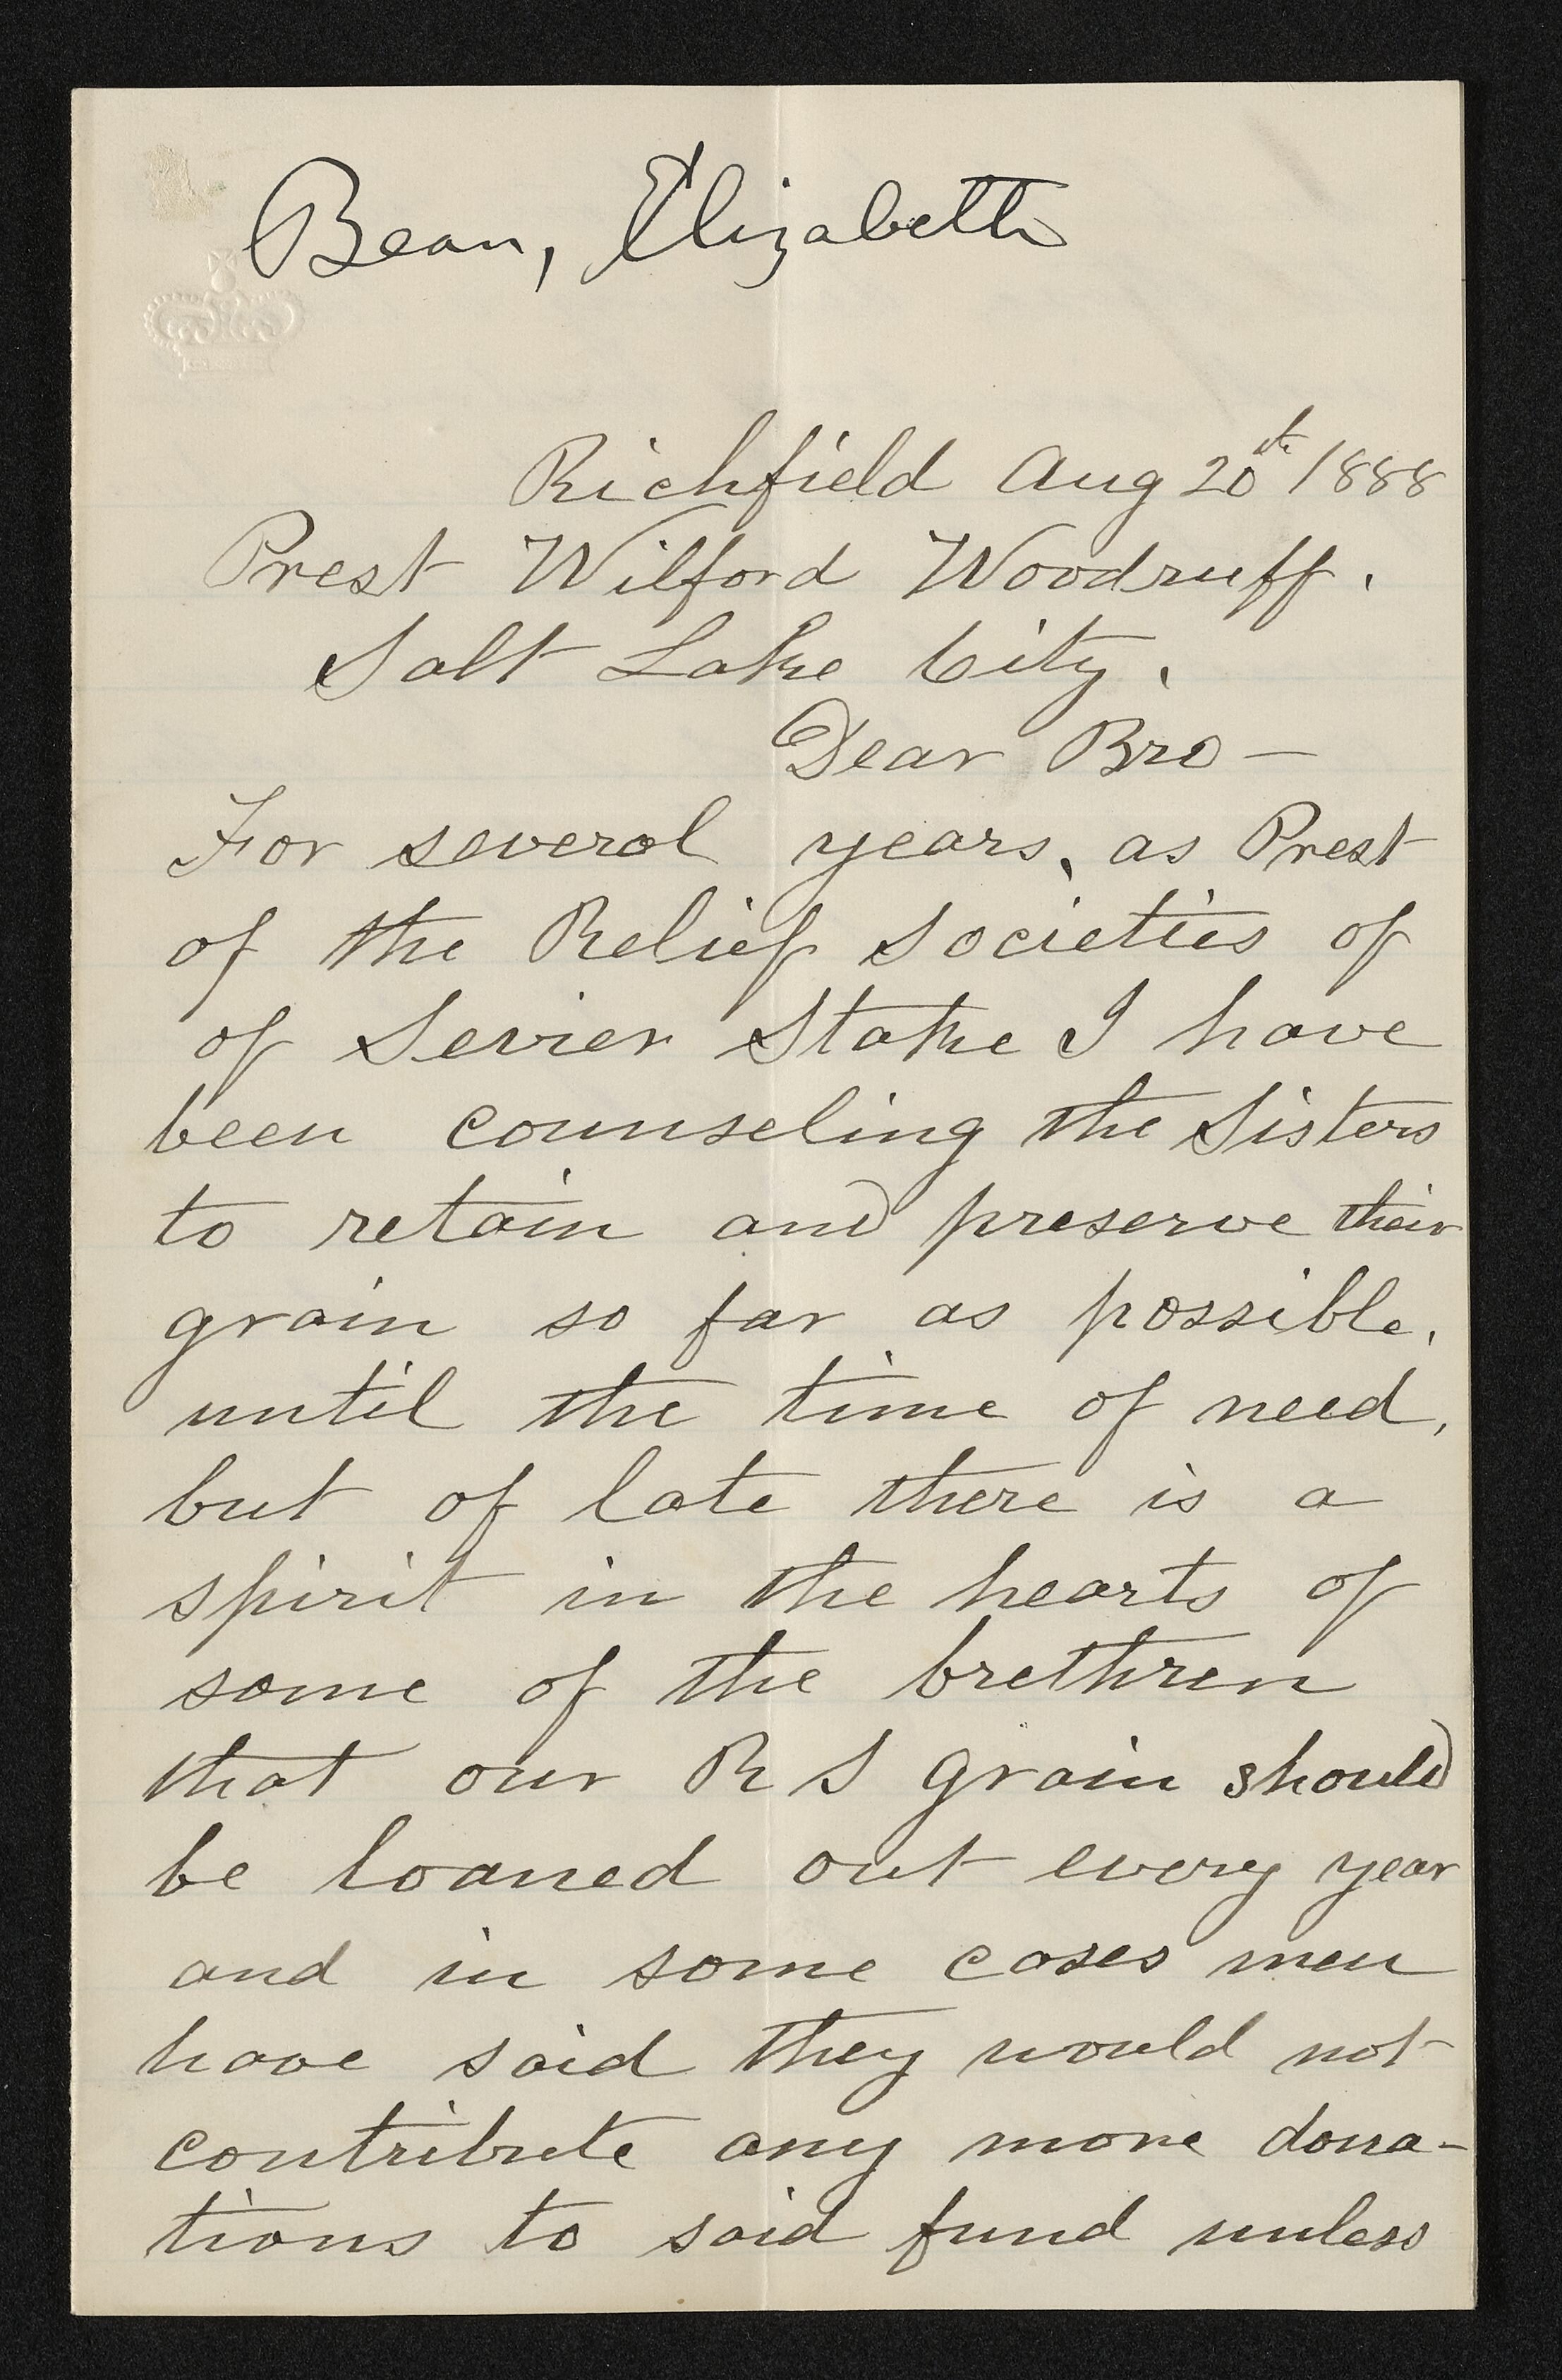 Bean, Elizabeth
Richfield Aug 20th 1888
Prest Wilford Woodruff.
Salt Lake City.
Dear Bro —
For several years, as Prest
of the Relief Societies of
of Sevier Stake I have
been counseling the Sisters
to retain and preserve their
grain so far as possible,
until the time of need,
but of late there is a
spirit in the hearts of
some of the brethren
that our R S grain should
be loaned out every year
and in some cases men
have said they would not
contribute any more dona-
tions to said fund unless